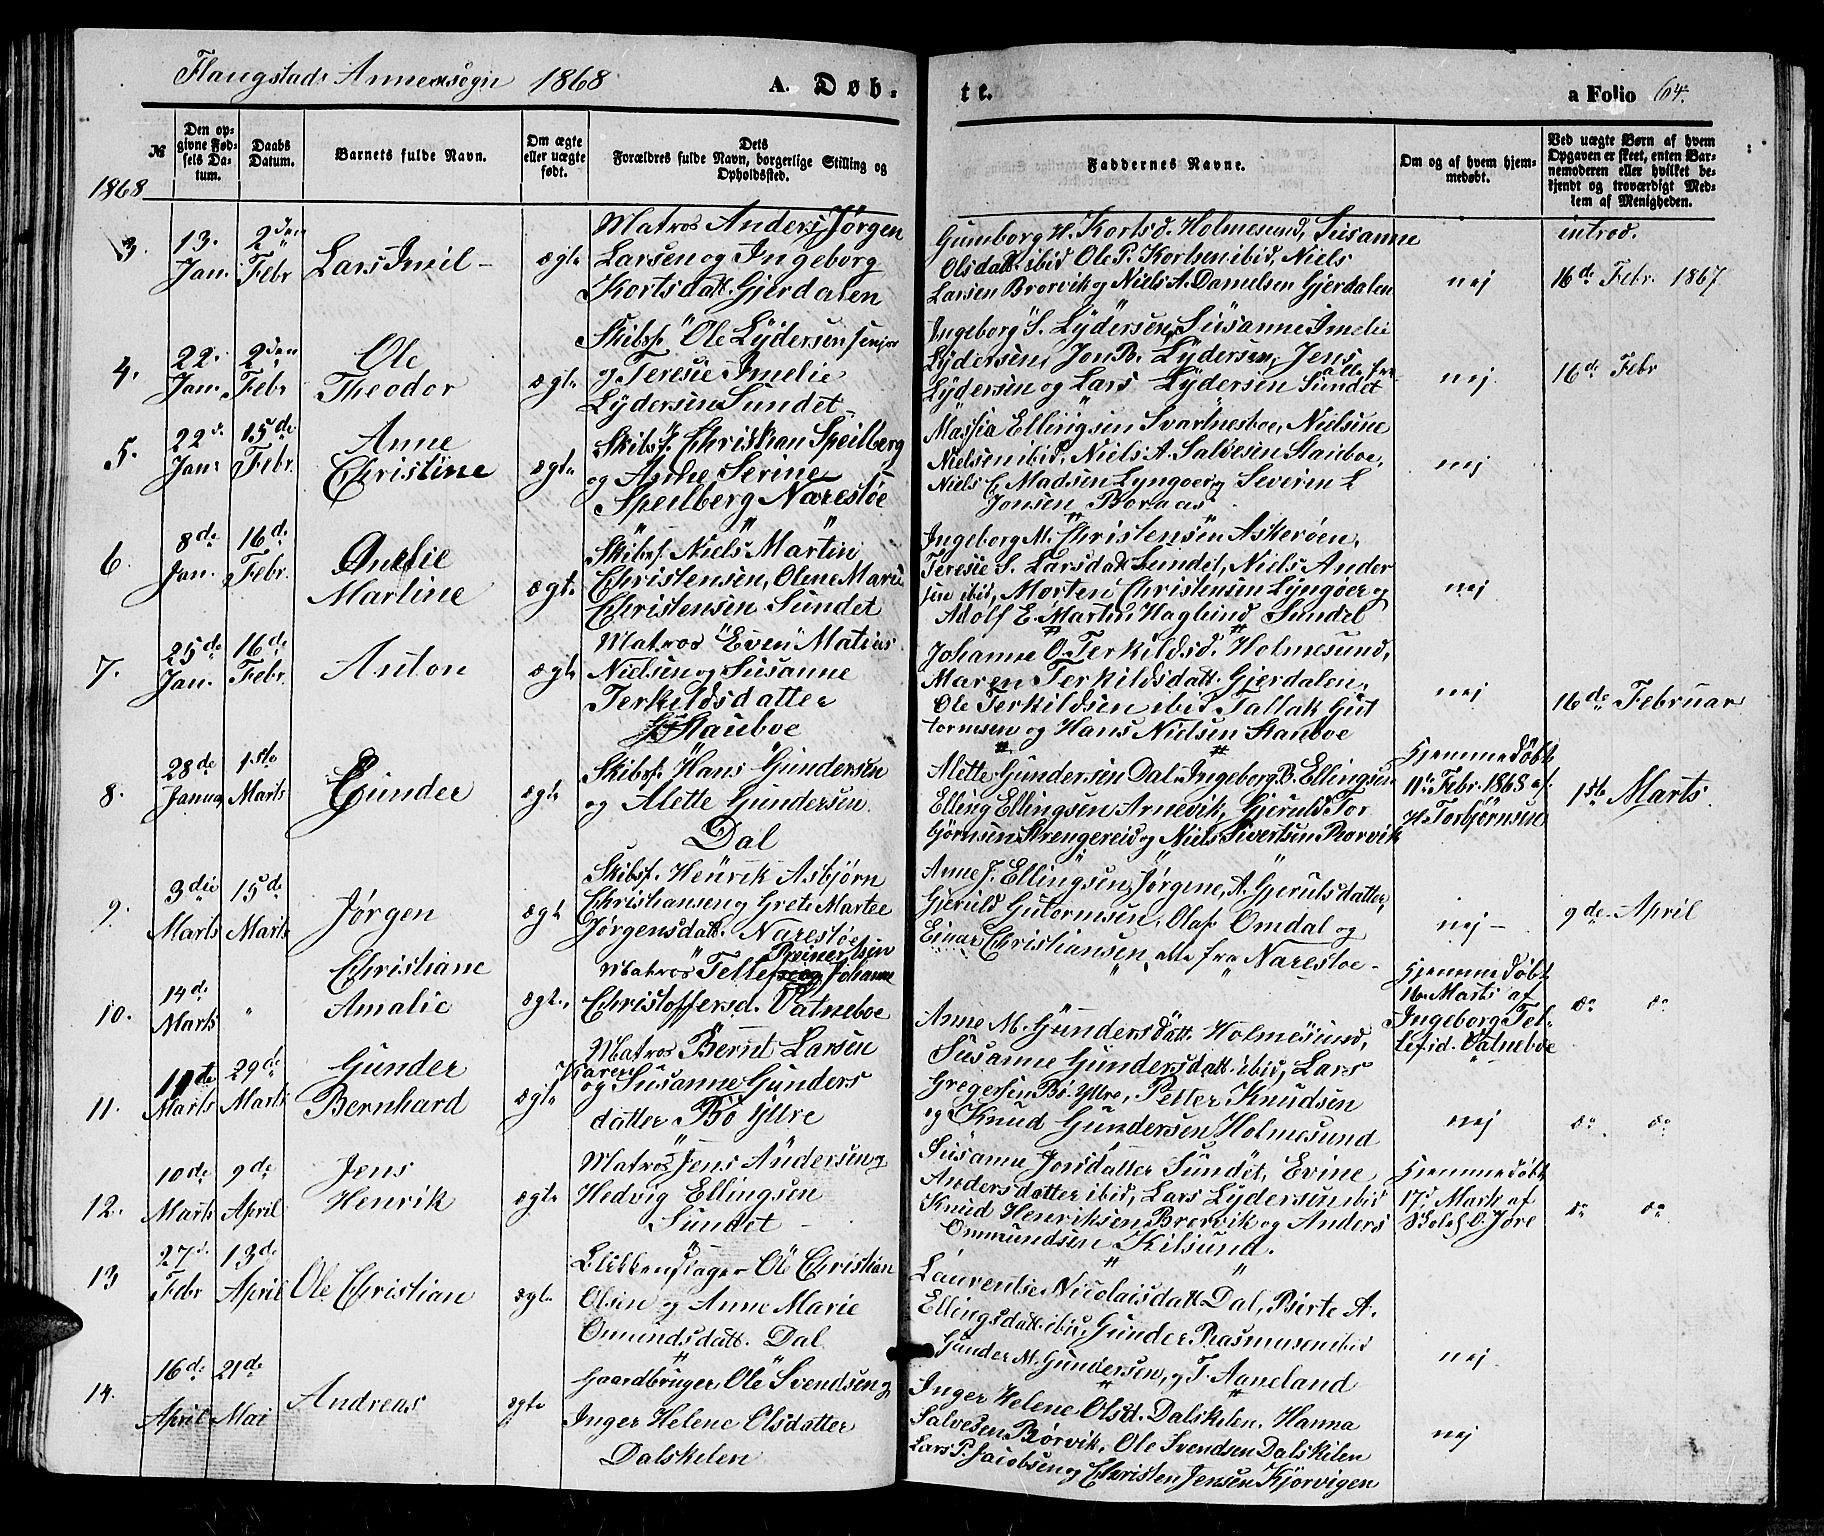 Flangstads Annexsogn 1868 A. Døb-
te. a Folio 64.
№
Den op-
givne Fød-
sels Da-
tum.
Daabs
Datum.
Barnets fulde Navn.
Om ægte
eller uægte
født.
Dets
Forældres fulde Navn, borgerlige Stilling og
Opholdssted.
Faddernes Navne.
Om og af hvem hjem-
medøbt.
Ved uægte Børn af hvem
Opgaven er skeet, enten Bar-
nemoderen eller hvilket be-
kjendt og troværdigt Med-
lem af Menigheden.
1868
3.
13.
Jan.
2den
Febr
Lars Emil
ægte
Matros Anders Jørgen
Larsen og Ingeborg
Kortsdatt. Gjerdalen
Gumborg H. Kortsd. Holmesund, Susanne
Olsdatt. ibid Ole P. Kortsen ibid, Niels
Larsen Brorvik og Niels A. Danielsen Gjerdalen
nej
introd.
16de Febr. 1867
4.
22.
Jan.
2den
Febr
Ole
Theodor
ægte
Skibsf. Ole Lydersen senjor
og Teresie Amelie
Lydersen Sundet
Ingeborg S. Lydersen, Susanne Amelie
Lydersen, Jon B. Lydersen, Jens
Lydersen og Lars Lydersen alle fra Sundet
nej
16de Febr
5.
22d.
Jan:
15de
Febr.
Anne
Christine
ægte
Skibsf. Christian Speilberg
og Anne Serine
Speilberg Narestøe
Massia Ellingsen Svartnesboe, Nielsine
Nielsen ibid, Niels A. Salvesen Staiboe,
Niels C. Madsen Lyngøer og Severin L
Jonsen Boraas
nej
6.
8de
Jan.
16de
Febr.
Amelie
Martine
ægte
Skibsf. Niels Martin
Christensen, Olene Marie
Christensen Sundet
Ingeborg M. Christensen Askerøen,
Teresie S. Larsdatt Sundet, Niels Ander
sen ibid, Morten Christensen Lyngøer og
Adolf E. Martin Haglund Sundet
nej
7.
25de
Jan.
16de
Febr.
Anton
ægte
Matros Even Matias
Nielsen og Susanne
Terkildsdatter
Stauboe
Johanne O. Terkildsd. Holmesund,
Maren Terkildsdatt. Gjerdalen,
Ole Terkildsen ibid Tallak Gut
tormsen og Hans Nielsen Stauboe
nej
16de Februar
8.
28de
Januar
1ste
Marts
Gunder
ægte
Skibsf. Hans Gundersen
og Mette Gundersen
Dal
Mette Gundersen Dal, Ingeborg B. Ellingsen
Elling Ellingsen Arnevik, Gjeruld Tor
gjørnsen Strengereid og Niels Sivertsen Borvik
Hjemmedøbt
11te Febr. 1868 af
H. Torbjørnsen
1ste Marts.
9.
3die
Marts
15de
Marts
Jørgen
ægte
Skibsf. Henrik Asbjørn
Christiansen og Grete Martee
Jørgensdatt. Narestøe
Anne J. Ellingsen, Jørgene A. Gjerulsdatter,
Gjeruld Gutormsen, Olaf Omdal og
Einar Christiansen, alle fra Narestøe
nej
9de April
10.
14de
Marts
"
Christiane
Amalie
ægte
Matros Tellef Reinertsen
og Johanne
Christoffersd. Vatneboe
Hjemmedøbt
16. Marts af
Ingeborg Tel-
lefsd. Vatneboe
do do
11.
10de
Marts
29de
Marts
Gunder
Bernhard
ægte
Matros Bernt Larsen
og Karen Susanne Gunders
datter Bö Ytre
Anne M. Gundersdatt. Holmesund,
Susanne Gundersdatt. ibid, Lars
Gregersen Bö Ytre, Petter Knudsen
og Knud Gundersen Holmesund
nej
do do
12.
10de
Marts
9de
April
Jens
Henrik
ægte
Matros Jens Andersen og
Hedvig Ellingsen
Sundet
Susanne Jonsdatter Sundet, Evine
Andersdatter ibid, Lars Lydersen ibid
Knud Henriksen Brorvik og Anders
Ommundsen Kilsund.
Hjemmedøbt
17d Marts af
O. Jore
do do
13
27d.
Febr
13de
April
Ole Christian
ægte
Ole Christian
Olsen og Anne Marie
Omundsdatt. Dal
Laurentse Nicolaisdatt Dal, Birte A.
Ellingsdatt. ibid, Gunder Rasmusen ibid
Gunder M. Gundersen, og T. Aaneland
nej
14.
16de
April
21de
Mai
Andreas
ægte
Gaardbruger Ole Svendsen og
Inger Helene Olsdatter
Dalskelen
Inger Helene Olsd. Dalskelen. Hanna
Salvesen Børvik, Ole Svendsen Dalskilen
Lars P. Jacobsen og Christen Jensen Kjorvigen
nej